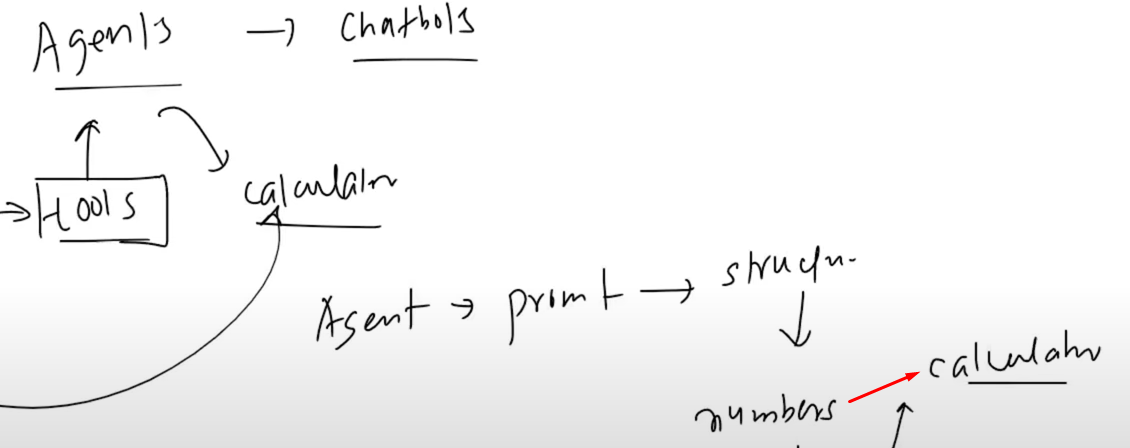 Agents → Chatbots
tools
calculator
Agent → promt → structu.
numbers → calculator